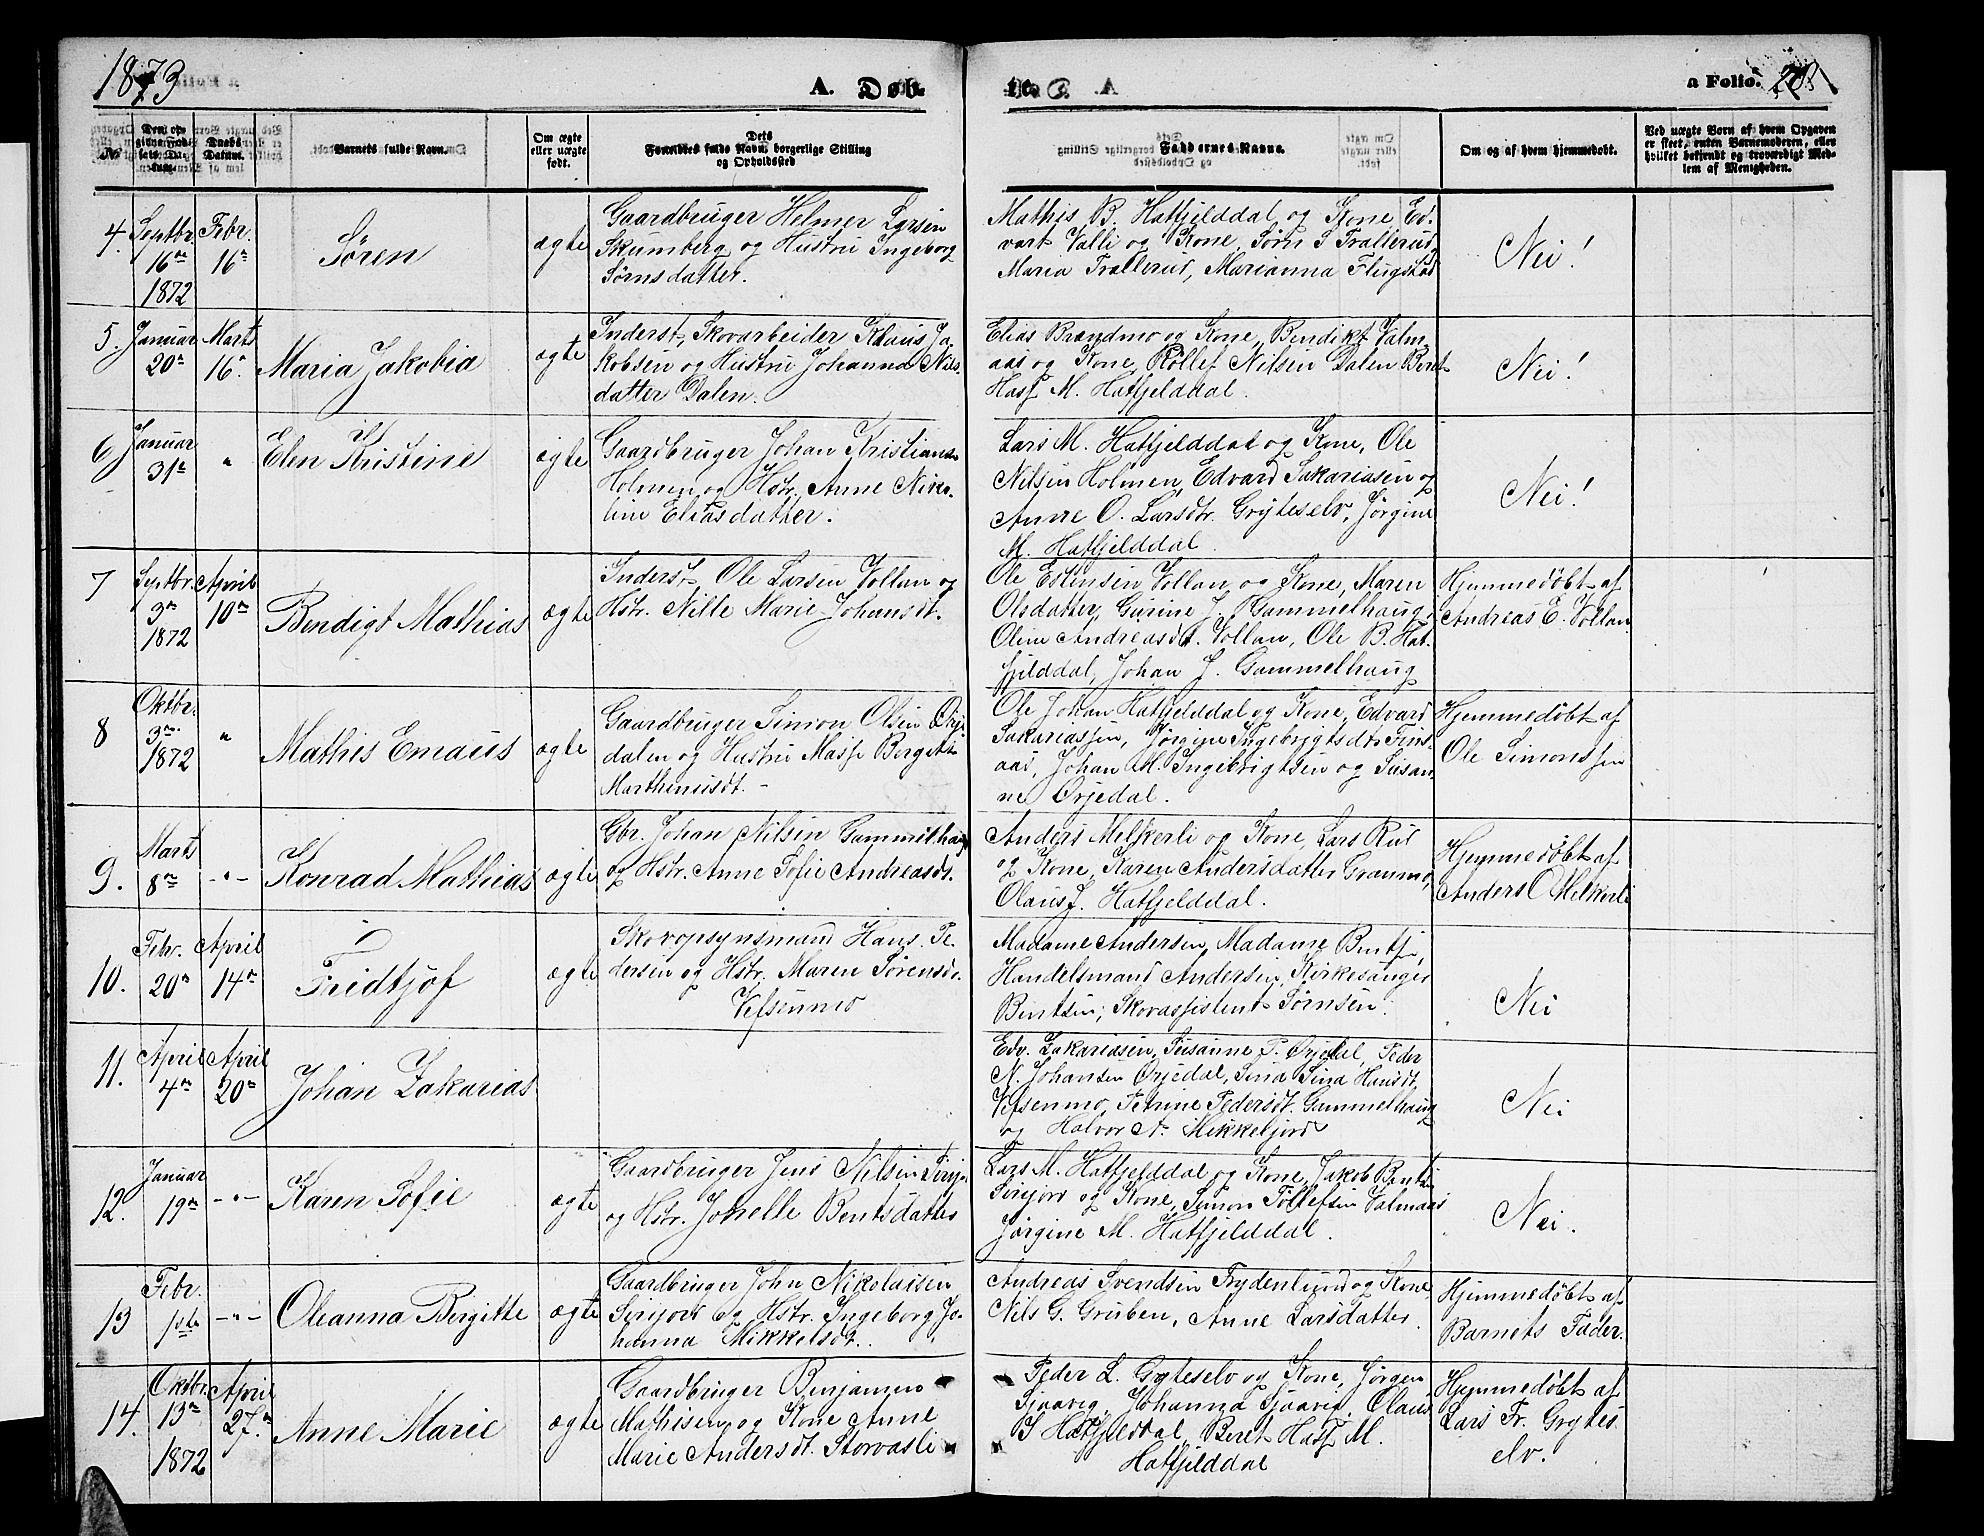 1873
A. Døb-
te.
a Folio. 28
No
Den opgivne Fødsels-Datum.
Daabs Datum.
Barnets fulde Navn.
Om ægte eller uægte født.
Dets Forældres fulde Navn, borgerlige Stilling og Opholdssted
Faddernes Navne.
Om og af hvem hjemmedøbt.
Ved uægte Børn af hvem Opgaven er skeet, enten Barnemoderen, eller hvilket bekjendt og troværdigt Medlem af Menigheden.
4. Septbr. 16de 1872
Febr. 16de
Søren
ægte
Gaardbruger Helmer Larsen
Skumberg og Hustru Ingeborg
Sørnsdatter.
Mathis B. Hatfjelddal og Kone, Ed-
vart Valli og Kone, Sørn S Trallerud,
Maria Trallerud, Marianna Flugstad
Nei!
5. Januar 20de
Marts 16de
Maria Jakobia
ægte
Inderst, Skovarbeider Klaus Ja-
kobsen og Hustru Johanna Nils-
datter Dalen.
Elias Brændmo og Kone, Bendikt Valm-
aas og Kone, Rollef Nilsen Dalen Beret
Hass M. Hatfjelddal.
Nei!
6 Januar 31te
"
Elen Kristine
ægte
Gaardbruger Johan Kristians-
Holmen og Hstr. Anne Niko-
line Eliasdatter.
Lars M. Hatfjelddal og Kone, Ole
Nilsen Holmen, Edvard Sakariasen og
Anne O. Larsdtr. Gryteselv, Jørgine
M. Hatfjelddal.
Nei!
7 Septbr. 3de 1872
April 10de
Bendigt Mathias
ægte
Inderst Ole Larsen Vollan og
Hstr. Nille Marie Johansdt.
Ole Estensen Vollan og Kone, Maren
Olsdatter, Gurine J. Gammelhaug,
Oline Andreasdt. Vollan, Ole B. Hat-
fjelddal, Johan J. Gammelhaug
Hjemmedøbt af
Andreas E. Vollan.
8 Oktbr. 3de 1872
"
Mathis Emaus
ægte
Gaardbruger Simon Olsen Ørje-
dalen og Hustru Masse Bergitte
Marthinusdt. -
Ole Johan Hatfjelddal og Kone, Edvard
Sakariassen, Jørgine Ingebrigtsdtr Fins-
aas, Johan M. Ingebrigtsen og Susan-
ne Ørjedal.
Hjemmedøbt af
Ole Simonssen
9. Marts 8de
-"-
Konrad Mathias
ægte
Gbr. Johan Nilsen Gammelhaug
og Hstr. Anne Sofie Andreasdt.
Anders Melkerli og Kone, Lars Rus
og Kone, Karen Andersdatter Granmo,
Olaus J. Hatfjelddal.
Hjemmedøbt af
Anders O Melkerli
10. Febr. 20de
April 14de
Fridtjof
ægte
Skovopsynsmand Hans Pe-
dersen og Hstr. Maren Sørensdt.
Vefsenmo
Madame Andersen, Madame Bentsen,
Handelsmand Andersen, Kirkesanger
Bentsen, Skovassistent Sørnsen.
Nei
11. April 4de
April 20de
Johan Zakarias
Edv. Zakariasen, Susanne P. Ørjedal, Peder
N. Johansen Ørjedal, Sina Sina Hansdt.
Vefsenmo, Petrine Pedersdt. Gammelhaug
og Halvor A. Mikkeljord
Nei
12. Januar 19de
-"-
Karen Sofie
ægte
Gaardbruger Jens Nilsen Sirijor
og Hstr. Jonelle Bentsdatter
Lars M. Hatfjelddal og Kone, Jakob Bents.
Sirijord og Kone, Simon Tollefsen Valmaas
Jørgine M. Hatfjelddal.
Nei.
13 Febr. 1ste
-"-
Oleanna Bergitte
ægte
Gaardbruger John Nikolaisen
Sirijord og Hstr. Ingeborg Jo-
hanna Mikkelsdt.
Andreas Svendsen Frydenlund og Kone
Nils G. Gruben, Anne Larsdatter.
Hjemmedøbt af
Barnets Fader.
14. Oktbr. 13de 1872
April 27de
Anne Marie
ægte
Gaardbruger Benjamin
Mathisen og Kone Anne
Marie Andersdt. Storvasli
Peder L. Gryteselv og Kone, Jørgen
Sjaavig, Johanna Sjaavig, Olaus
J Hatfjelddal, Beret Hass M.
Hatfjelddal
Hjemmedøbt af
Lars Fr. Grytes-
elv.